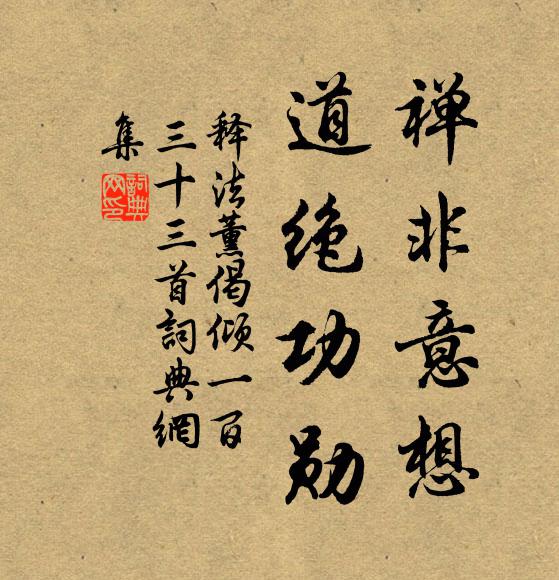 禅非意想
道绝功勋
释法薰偈倾一百
三十三首詞典網
集
詞典
网印